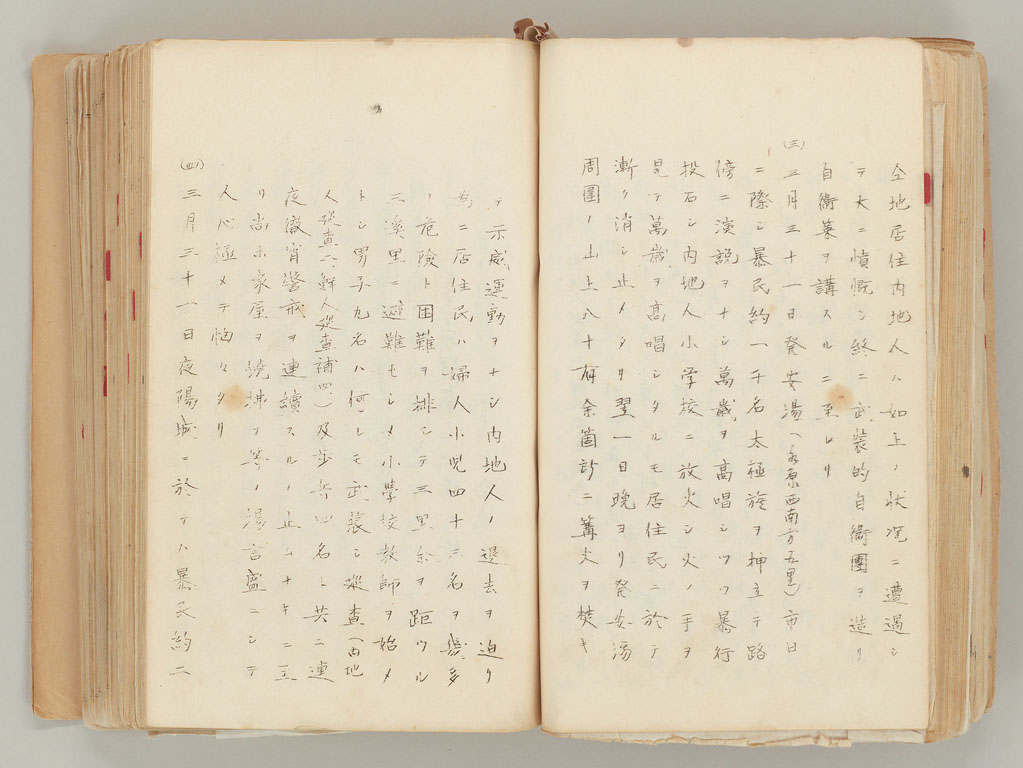 仝地居住内地人ハ如上ノ状況ニ遭遇シ
テ大ニ憤慨シ終ニ武装的自衛團ヲ造リ
自衛策ヲ講スルニ至レリ
(三)
三月三十一日発安場(水原西南方五里)市日
ニ際シ暴民約一千名太極旗ヲ押立テ路
傍ニ演説ヲナシ萬歳ヲ高唱シツツ暴行
投石シ内地人小学校ニ放火シ火ノ手ヲ
見テ萬歳ヲ高唱シタルモ居住民ニ於テ
漸ク消シ止メタリ翌一日晩ヨリ発安場
周圍ノ山上八十有余箇許ニ篝火ヲ焚キ
テ示威運動ヲナシ内地人ノ退去ヲ迫リ
為ニ居住民ハ婦人小児四十二名ヲ幾多
ノ危険ト困難ヲ排シテ三里余ヲ距ツル
三溪里ニ避難セシメ小學校教師ヲ始メ
トシ男子九名ハ何レモ武装シ巡査(内地
人巡査二、鮮人巡査補四、)及歩兵四名ト共ニ連
夜徹宵警戒ヲ連續スルノ止ムナキニ至
リ尚ホ家屋ヲ焼拂フ等ノ揚言盛ニシテ
人心極メテ恟々タリ
(四)
三月三十一日夜陽城ニ於テハ暴民約二